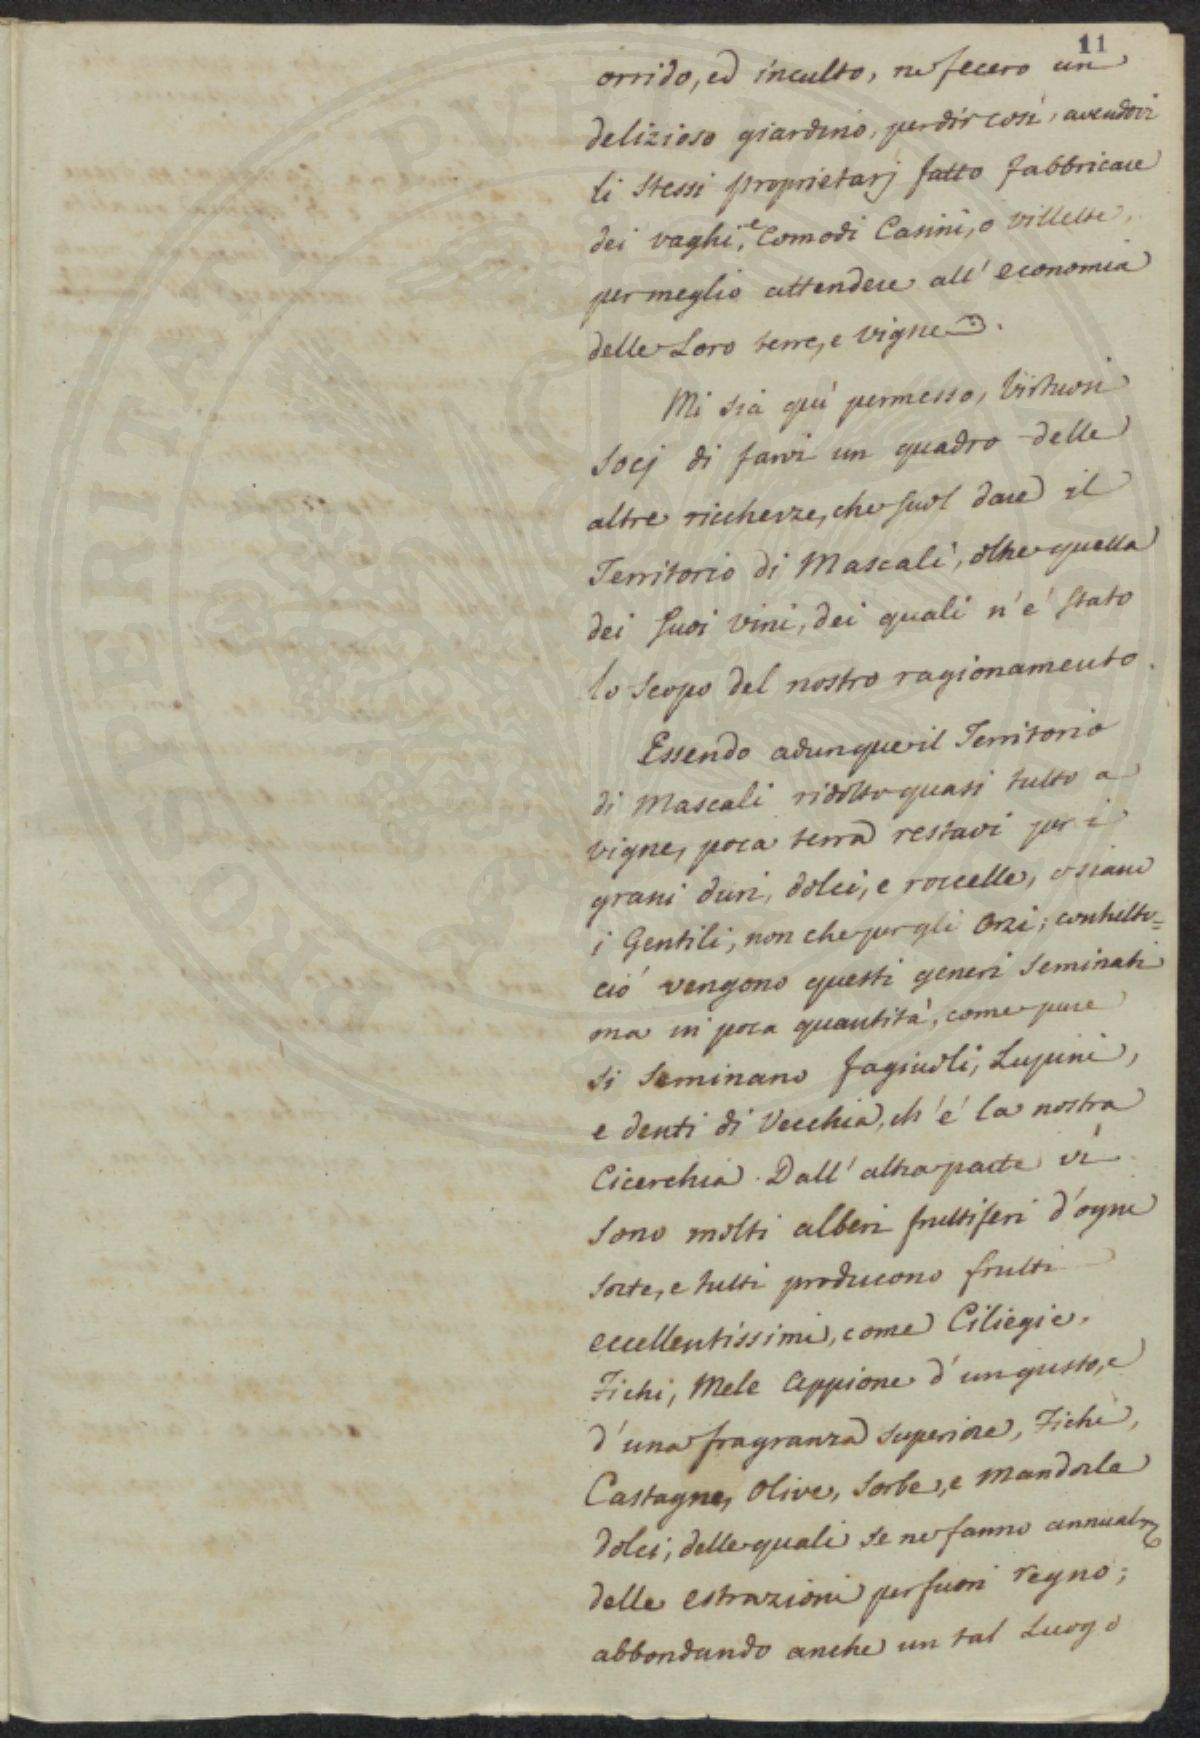 11
orrido, ed inculto, ne fecero un
delizioso giardino, per dir così, avendovi
li Stessi proprietarj fatto fabbricare
dei vaghi, e Comodi Casini, o villette,
per meglio attendere all' economia
delle Loro terre, e vigne.
Mi sia quì permesso, Virtuosi
Socj di farvi un quadro delle
altre ricchezze, che suol dare il
Territorio di Mascali, oltre quella
dei Suoi vini, dei quali n'è Stato
lo Scopo del nostro ragionamento.
Essendo adunque il Territorio
di Mascali ridotto quasi tutto a
vigne, poca terra restavi per i
grani duri, dolci, e roccelle, o siano
i Gentili, non che per gli Orzi; contutto=
ciò vengono questi generi Seminati
ma in poca quantità, come pure
si Seminano fagiuoli, Lupini,
e denti di Vecchia, ch'è la nostra
Cicerchia. Dall' altra parte vi
Sono molti alberi fruttiferi d'ogni
Sorte, e tutti producono frutti
eccellentissimi, come Ciliegie,
Fichi, Mele Appione d'un gusto, e
d'una fragranza Superiore, Fichi,
Castagne, Olive, Sorbe, e Mandorle
dolci, delle quali se ne fanno
delle estrazioni per fuori regno;
abbondando anche un tal Luogo
PERITIAE PVBLICAE